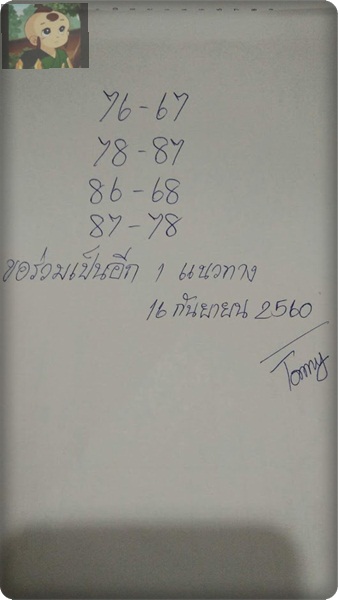 76 - 67
78 - 87
86 - 68
87 - 78
ขอร่วมเป็นอีก 1 แนวทาง
16 กันยายน 2560
Tommy